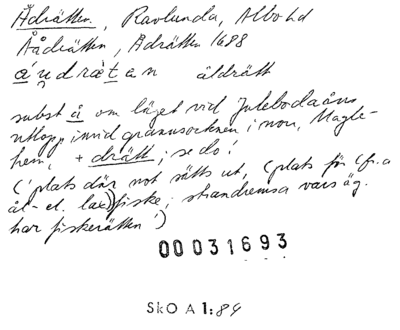 Ådrätten, Ravlunda, Albo hd
Åådrätten, Adrätten 1688
áu̯drætan åldrätt
subst å om läget vid Julebodaåns
utlopp invid gränssocknen i norr, Magle-
hem, + drätt; se do!
('plats där not sätts ut, (plats för (fr.a
ål- el. lax)) fiske; strandremsa vars äg.
har fiskerätten')
00031693
SkO A 1:84